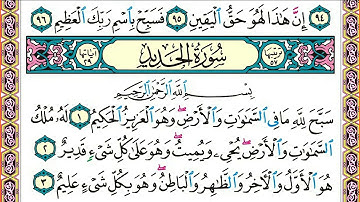 ٩٤ إِنَّ هَٰذَا لَهُوَ حَقُّ ٱلْيَقِينِ ٩٥ فَسَبِّحْ بِٱسْمِ رَبِّكَ ٱلْعَظِيمِ ٩٦
سُورَةُ الحَدِيدِ
بِسْمِ ٱللَّهِ ٱلرَّحْمَٰنِ ٱلرَّحِيمِ
سَبَّحَ لِلَّهِ مَا فِى ٱلسَّمَٰوَٰتِ وَٱلْأَرْضِ ۖ وَهُوَ ٱلْعَزِيزُ ٱلْحَكِيمُ ١ لَهُۥ مُلْكُ
ٱلسَّمَٰوَٰتِ وَٱلْأَرْضِ ۖ يُحْىِۦ وَيُمِيتُ ۖ وَهُوَ عَلَىٰ كُلِّ شَىْءٍ قَدِيرٌ ٢
هُوَ ٱلْأَوَّلُ وَٱلْءَاخِرُ وَٱلظَّٰهِرُ وَٱلْبَاطِنُ ۖ وَهُوَ بِكُلِّ شَىْءٍ عَلِيمٌ ٣